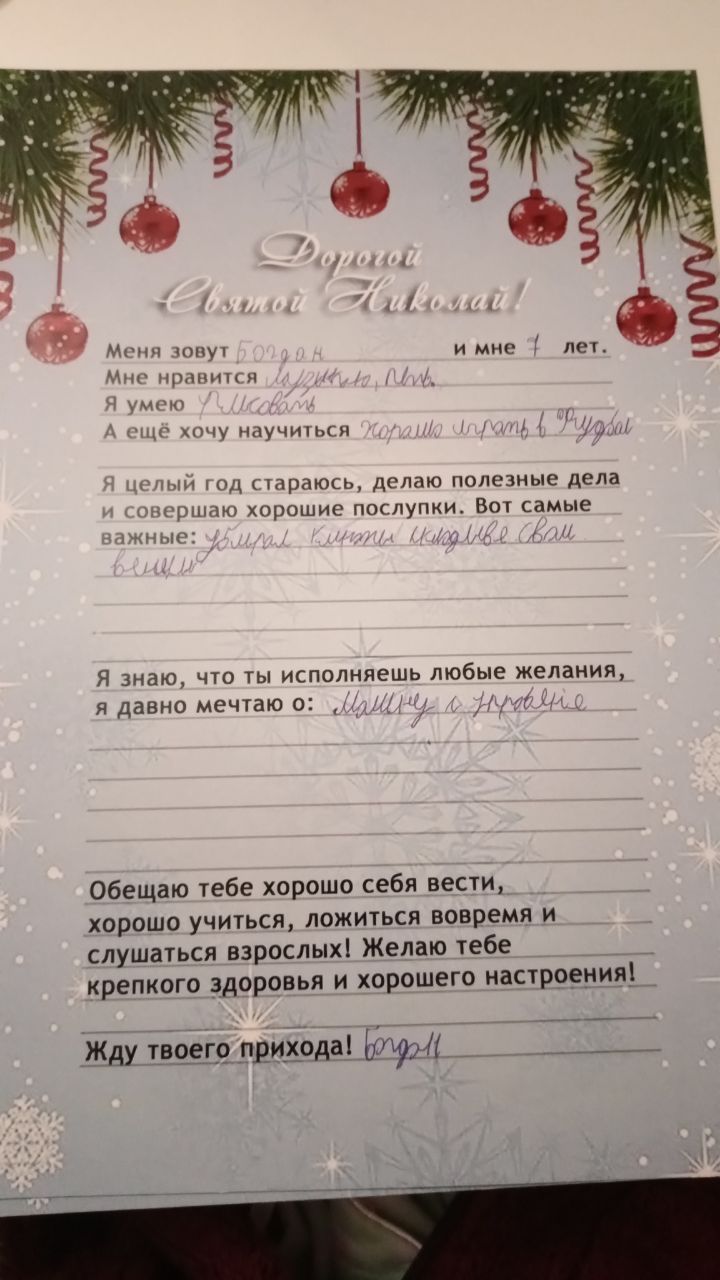 Дорогой
Святой Николай!
Меня зовут Богдан и мне 7 лет.
Мне нравится
Я умею рисовать
А ещё хочу научиться хорашо играть в Футбол
Я целый год стараюсь, делаю полезные дела
и совершаю хорошие послупки. Вот самые
важные: убирал свои
вещи
Я знаю, что ты исполняешь любые желания,
я давно мечтаю о: Машину
Обещаю тебе хорошо себя вести,
хорошо учиться, ложиться вовремя и
слушаться взрослых! Желаю тебе
крепкого здоровья и хорошего настроения!
Жду твоего прихода! Богдан